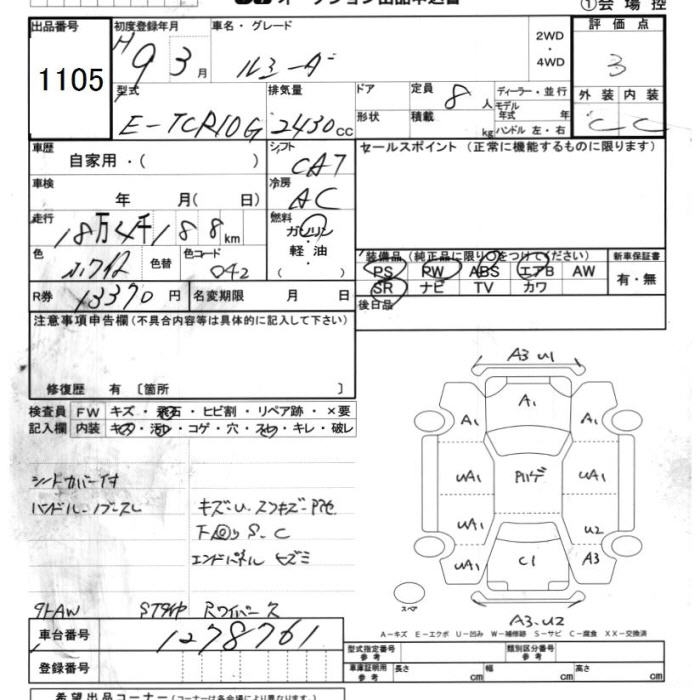 オークション出品申込書
①会場控
出品番号 初度登録年月 車名・グレード 2WD・4WD 評価点
1105 H9 3月 ルシーダ 3
型式 排気量 ドア 定員 8人 ディーラー・並行 外装 内装
E-TCR10G 2430cc 形状 積載 kg モデル年式 年 C C
ハンドル 左・右
車歴 シフト セールスポイント (正常に機能するものに限ります)
自家用・( ) CA7
車検 冷房
年 月( 日) AC
走行 燃料
18万4千188km ガソリン
色 色替 色コード 軽・油
042 ( )
装備品 (純正品に限り○をつけてください) 新車保証書
PS PW ABS エアB AW 有・無
SR ナビ TV カワ
R券 13370円 名変期限 月 日 後日品
注意事項申告欄 (不具合内容等は具体的に記入して下さい)
修復歴 有 〔箇所 〕
検査員記入欄 FW キズ・飛石・ヒビ割・リペア跡・×要
内装 キズ・汚れ・コゲ・穴・スレ・キレ・破レ
シートカバー付
ハンドル・ノブスレ キズU.スリキズ-P他
下回りS.C
エンドパネル ヒズミ
外AW STタイヤ Rワイパーレス
A3 U1
A1
A1 A1
UA1 Pハゲ UA1
UA1 U2
UA1 C1 A3
スペア
A3.U2
A-キズ E-エクボ U-凹み W-補修跡 S-サビ C-腐食 XX-交換済
車台番号 1278761
登録番号
型式指定番号 参考 類別区分番号 参考
車庫証明用 参考 長さ cm 幅 cm 高さ cm
希望出品コーナー